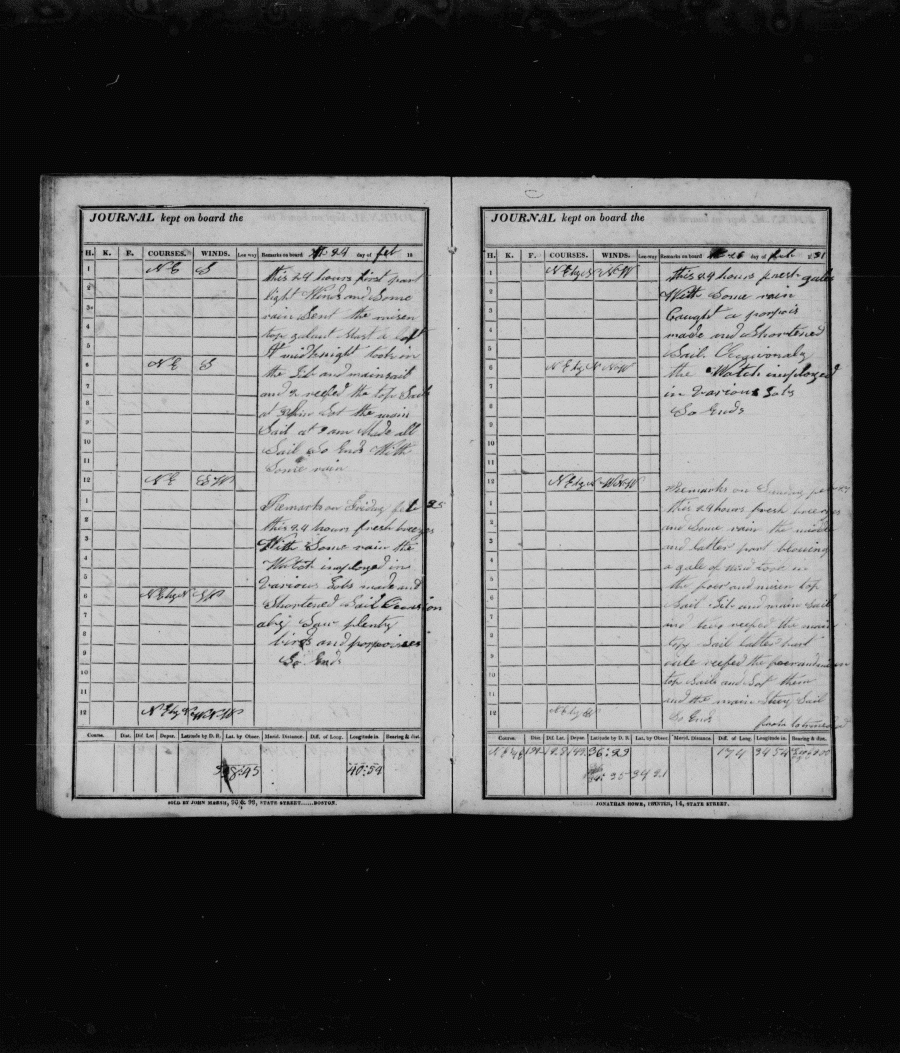 JOURNAL kept on board the
H. K. F. COURSES. WINDS. Lee-way Remarks on board 24 day of feb 18
1 N E S
this 24 hours first part
2
light Winds and Some
3
rain Sent the misen
4
top galant Mast a loft
5
At midknight took in
6 N E S
the Jib and mainsail
7
and 2 reefed the top Sails
8
at Set the main
9
Sail at 9 am Made all
10
Sail So Ends With
11
Some rain
12 N E S W
1
Remarks on Friday feb 25
2
this 24 hours fresh breezes
3
With Some rain the
4
Watch imployed in
5
Various Jobs made and
6 N E by N S W
Shortened Sail Occasion
7
aly Saw plenty
8
birds and porpoises
9
So Ends
10
11
12 N E by N W N W
Course. Dist. Dif. Lat. Depar. Latitude by D. R. Lat. by Obser. Merid. Distance. Diff. of Long. Longitude in. Bearing & dist.
38:45 40:54
SOLD BY JOHN MARSH, 96 & 98, STATE STREET......BOSTON.
JOURNAL kept on board the
H. K. F. COURSES. WINDS. Lee-way Remarks on board 26 day of feb 1831
1 N E by N N W
this 24 hours first gale
2
With Some rain
3
Caught a porpois
4
made and Shortened
5
Sail Occasionaly
6 N E by N N W
the Watch imployed
7
in Various Jobs
8
So Ends
9
10
11
12 N E by N W N W
1
Remarks on Sunday
this 24 hours fresh breezes
2
and Some rain the middle
3
and latter part blowing
4
a gale of wind took in
5
the foer and main top
6
Sail Jib and main Sail
7
and two reefed the main
8
top Sail latter part
9
reefed the foer and
10
top Sails and Sot them
11
and the main Stay Sail
12 N E by E
So Ends
Course. Dist. Dif. Lat. Depar. Latitude by D. R. Lat. by Obser. Merid. Distance. Diff. of Long. Longitude in. Bearing & dist.
36:23 174 34 54
JONATHAN HOWE, PRINTER, 14, STATE STREET.